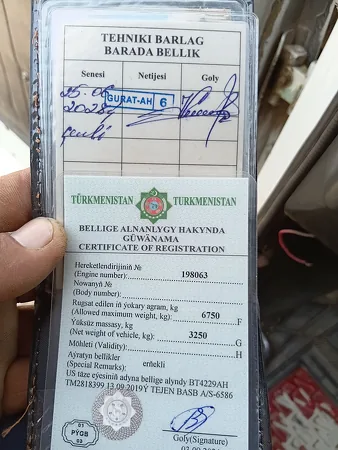 TEHNIKI BARLAG
BARADA BELLIK
Senesi Netijesi Goly
25.06
GURAT-AH 6
2028ý
TÜRKMENISTAN TURKMENISTAN
BELLIGE ALNANLYGY HAKYNDA
GÜWÄNAMA
CERTIFICATE OF REGISTRATION
Hereketlendirijiniň №
(Engine number): 198063
Nowanyň №
(Body number):
Rugsat edilen iň ýokary agram, kg
(Allowed maximum weight, kg): 6750 F
Ýüksüz massasy, kg
(Net weight of vehicle, kg): 3250 G
Möhleti (Validity): H
Aýratyn bellikler
(Special Remarks): erňekli
US täze eýesiniň adyna bellige alyndy BT4229AH
TM2818399 13.09.2019Ý TEJEN BASB A/S-6586
01
PÝGB
03
Goly(Signature)